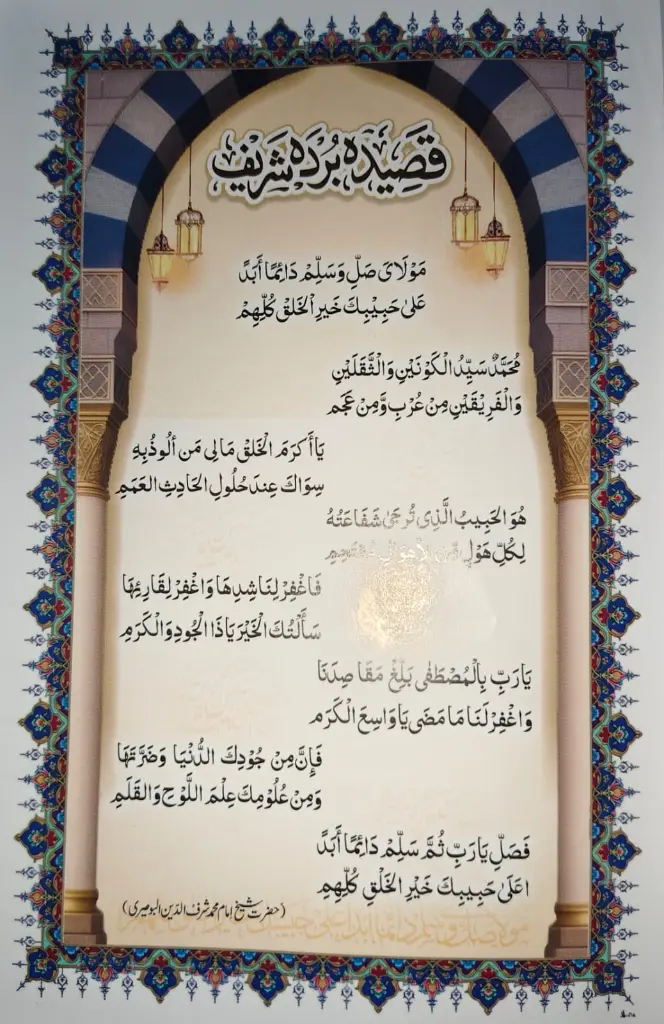 قَصِيْدَه بُرْدَه شَرِيْف
مَوْلَاىَ صَلِّ وَسَلِّمْ دَائِمًا أَبَدًا
عَلىٰ حَبِيْبِكَ خَيْرِ الْخَلْقِ كُلِّهِمْ
مُحَمَّدٌ سَيِّدُ الْكَوْنَيْنِ وَالثَّقَلَيْنِ
وَالْفَرِيْقَيْنِ مِنْ عُرْبٍ وَّمِنْ عَجَمِ
يَا أَكرَمَ الْخَلْقِ مَالِى مَن ألُوذُ بِهِ
سِوَاكَ عِندَ حُلُولِ الحَادِثِ العَمَمِ
هُوَ الحَبِيبُ الَّذِى تُرجىٰ شَفَاعَتُهُ
لِكُلِّ هَوْلٍ مِّنَ الأهوَالِ
فَاغْفِرْ لِنَاشِدِهَا وَاغْفِرْ لِقَارِئِهَا
سَأَلْتُكَ الْخَيْرَ يَا ذَا الْجُودِ وَالْكَرَمِ
يَارَبِّ بِالْمُصْطَفٰى بَلِّغْ مَقَا صِدَنَا
وَاغْفِرْ لَنَا مَا مَضَى يَا وَاسِعَ الْكَرَمِ
فَإِنَّ مِنْ جُودِكَ الدُّنْيَا وَضَرَّتَهَا
وَمِنْ عُلُومِكَ عِلْمَ اللَّوْحِ وَالقَلَمِ
فَصَلِّ يَارَبِّ ثُمَّ سَلِّمْ دَائِمًا أَبَدًا
اعَلَى حَبِيبِكَ خَيْرِ الْخَلْقِ كُلِّهِمِ
(حضرت شیخ امام محمد شرف الدین البوصیری)